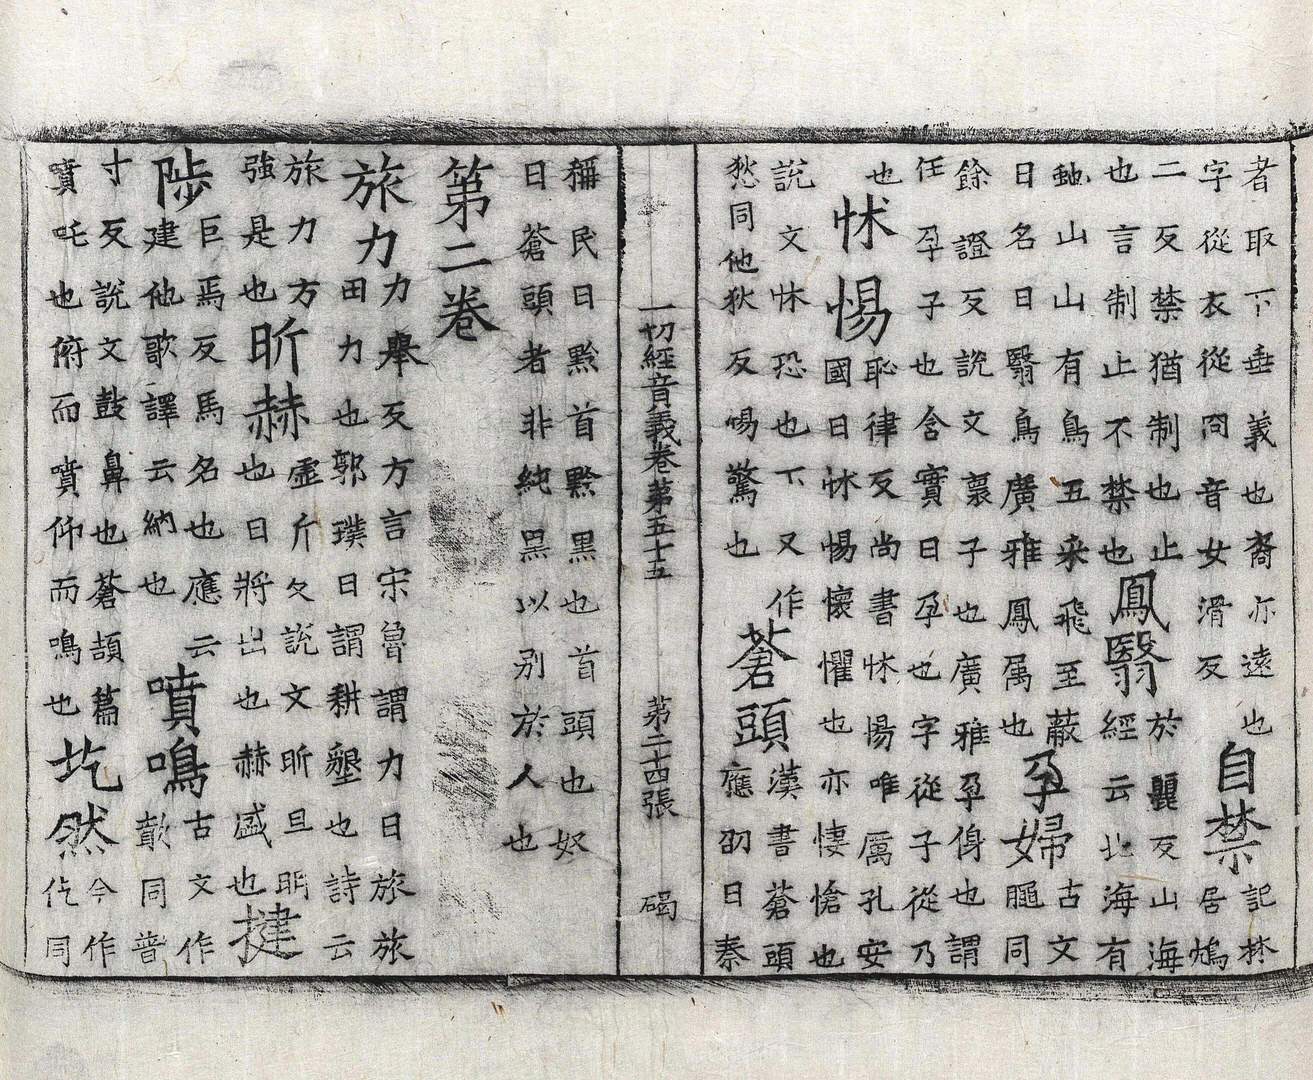 者取下垂義也裔亦遠也字從衣從冏音女滑反自禁記林居鴆
二反禁猶制也止也言制止不禁也鳳翳於麗反山海經云北海有
蚰山山有鳥五采飛至蔽日名曰翳鳥廣雅鳳属也孕婦古文同
餘證反説文褱子也廣雅孕身也謂任孕子也含實曰孕也字從子從乃
也怵惕恥律反尚書怵惕唯厲孔安國曰怵惕懷懼也亦悽愴也
説文怵恐也下又作愁同他狄反惕驚也蒼頭漢書蒼頭應劭曰秦
一切經音義卷第五十五 第二十四張 碣
稱民曰黔首黔黒也首頭也奴曰蒼頭者非純黒以別於人也
第二卷
旅力力舉反方言宋魯謂力曰旅旅田力也郭璞曰謂耕墾也詩云
旅力方強是也昕赫虛斤反説文昕旦明也日將出也赫盛也揵
陟巨焉反馬名也應云建他歌譯云納也噴鳴古文作歕同普
寸反説文鼓鼻也蒼頡篇噴吒也俯而噴仰而鳴也圪然今作仡同